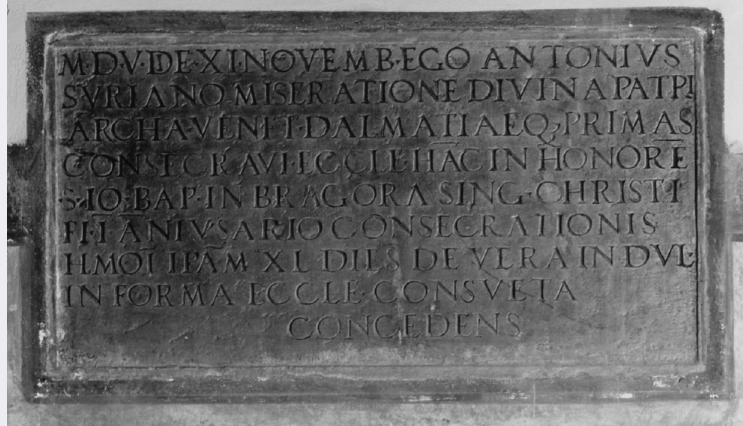 M·D·V·DIE·XI·NOVEMB·EGO ANTONIVS
SVRIANO MISERATIONE DIVINA PATRI
ARCHA·VENET·DALMATIAEQ; PRIMAS
CONSECRAVI·ECCLE·HAC IN HONORE
·S·IO·BAP·IN BRAGORA SING·CHRISTI
FI·IANIVSARIO CONSECRATIONIS
HMOI IPAM XL DIES DE VERA INDVL·
IN FORMA ECCLE·CONSVETA
CONCEDENS